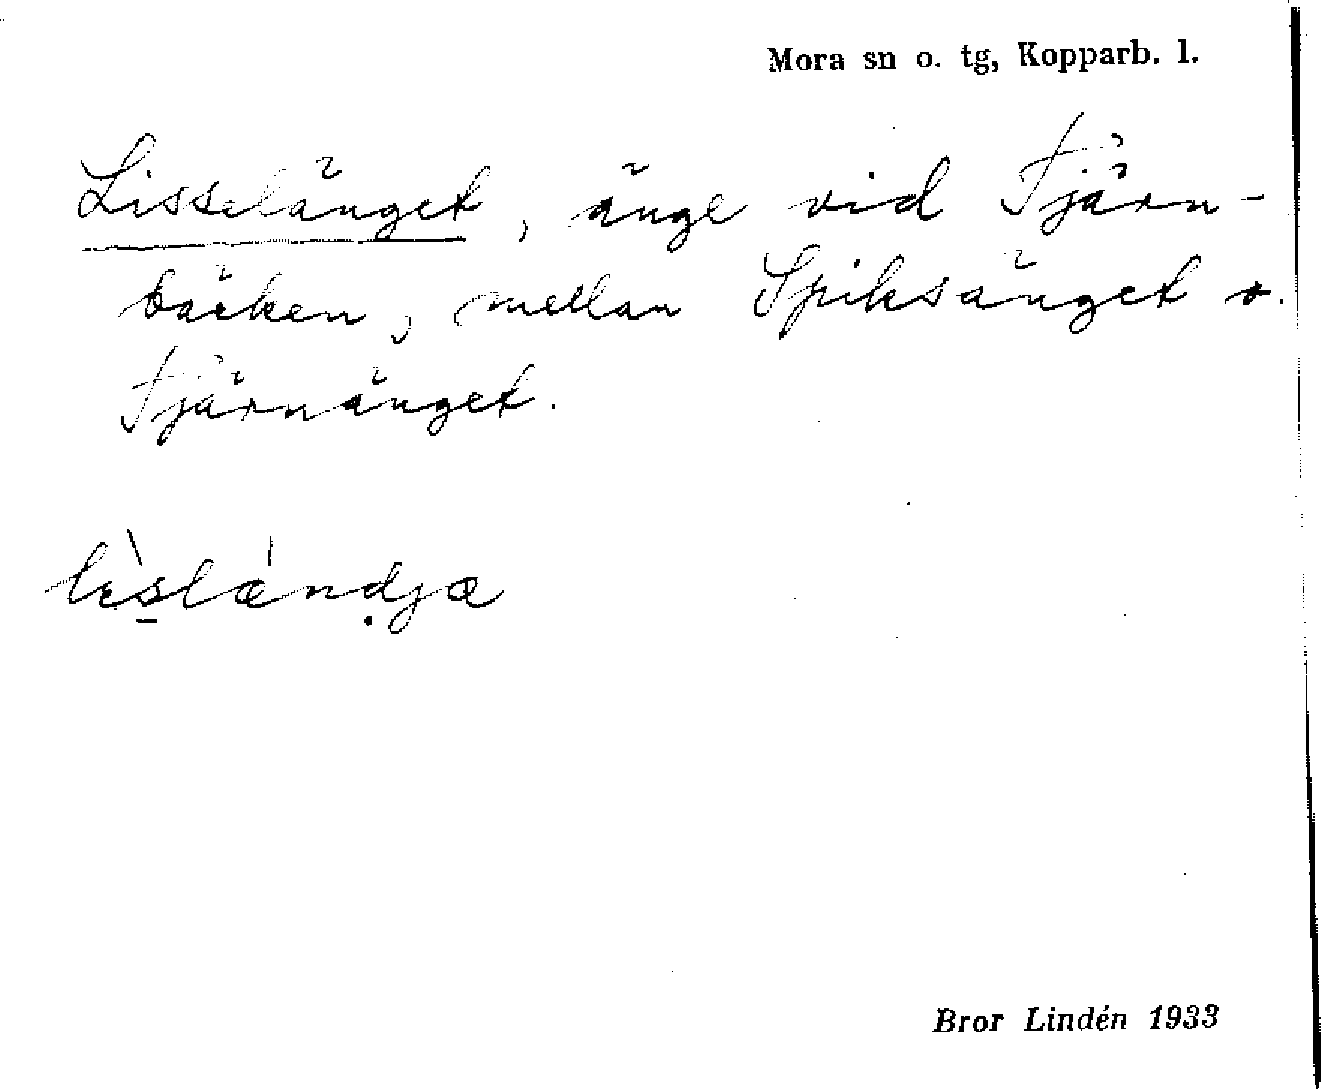 Mora sn o. tg, Kopparb. l.
Lisselänget, änge vid Tjärn-
bäcken, mellan Spiksänget o.
Tjärnänget.
Bror Lindén 1933